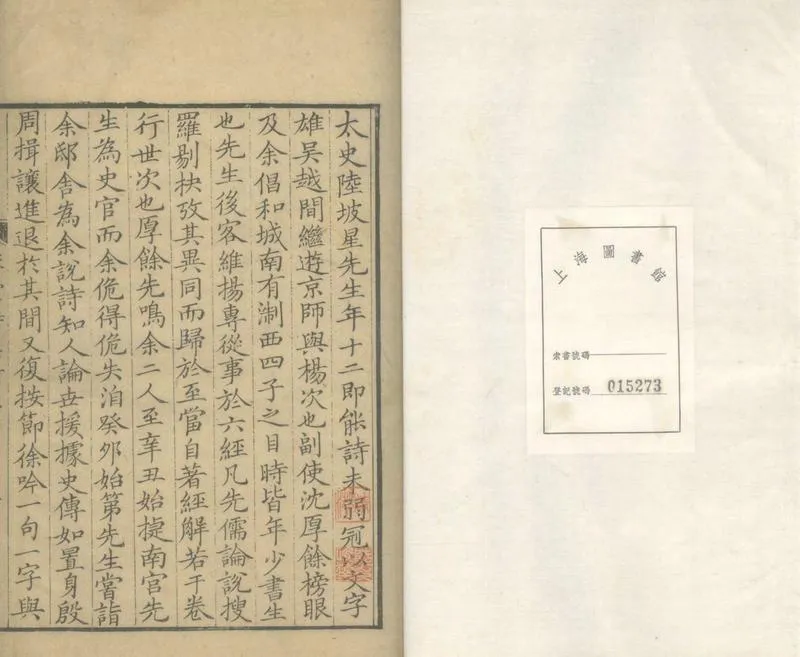 太史陸坡星先生年十二即能詩未弱冠以文字
雄吴越間繼遊京師與楊次也副使沈厚餘榜眼
及余倡和城南有淛西四子之目時皆年少書生
也先生後客維揚專從事於六經凡先儒論說搜
羅剔抉攷其異同而歸於至當自著經解若干卷
行世次也厚餘先鳴余二人至辛丑始捷南宫先
生為史官而余俛得俛失洎癸夘始第先生嘗詣
余邸舍為余說詩知人論丗援據史傳如置身殷
周揖讓進退於其間又復按節徐吟一句一字與
上海圖書館
索書號碼
登記號碼 015273